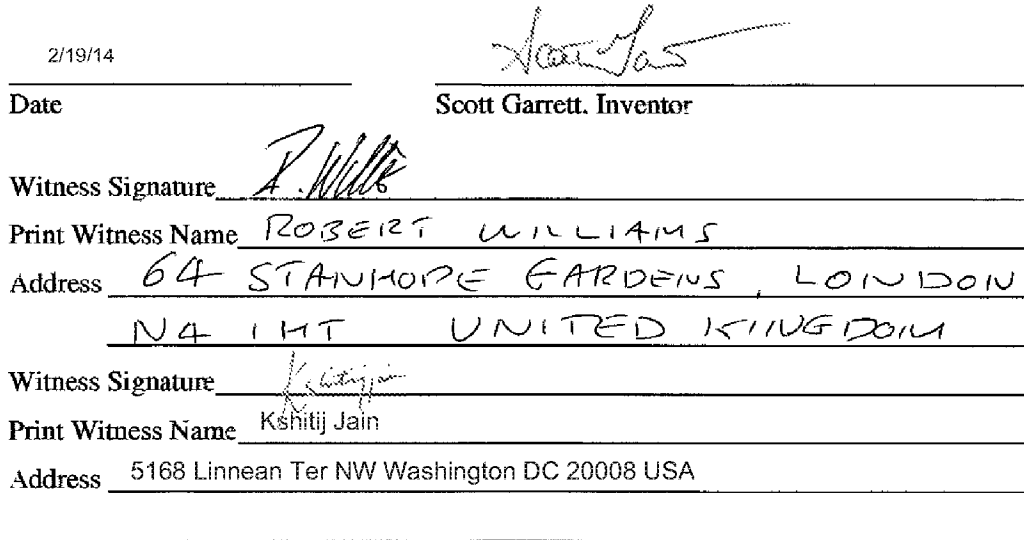 2/19/14
Date Scott Garrett, Inventor
Witness Signature R. Willi
Print Witness Name ROBERT WILLIAMS
Address 64 STANHOPE GARDENS, LONDON
N4 1HT UNITED KINGDOM
Witness Signature Kshitij Jain
Print Witness Name Kshitij Jain
Address 5168 Linnean Ter NW Washington DC 20008 USA